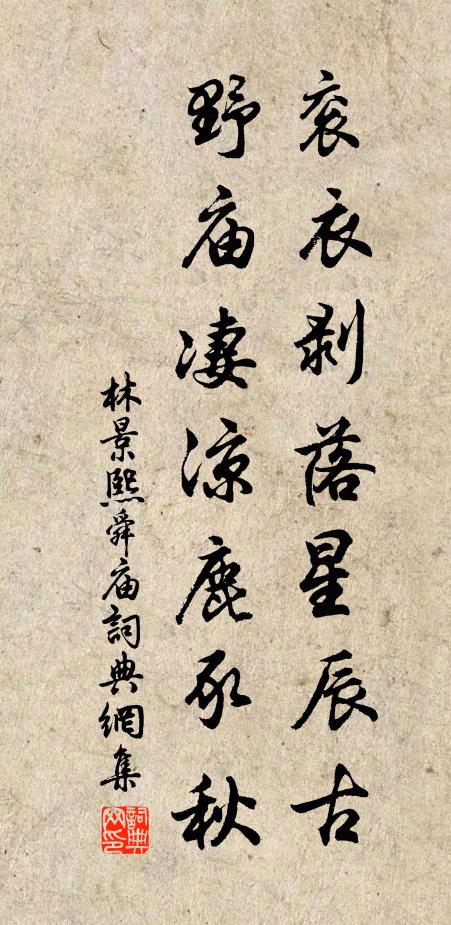 衮衣剥落星辰古
野庙凄凉鹿豕秋
林景熙舜庙詞典網集
詞典网印